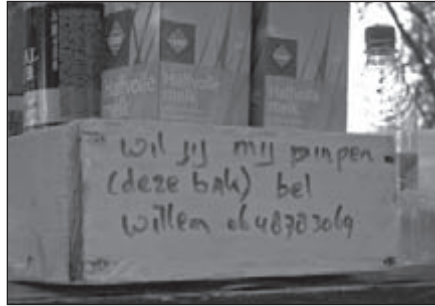 Halfvolle
melk
Halfvolle
melk
wil jij mij pimpen
(deze bak) bel
willem 0648783069